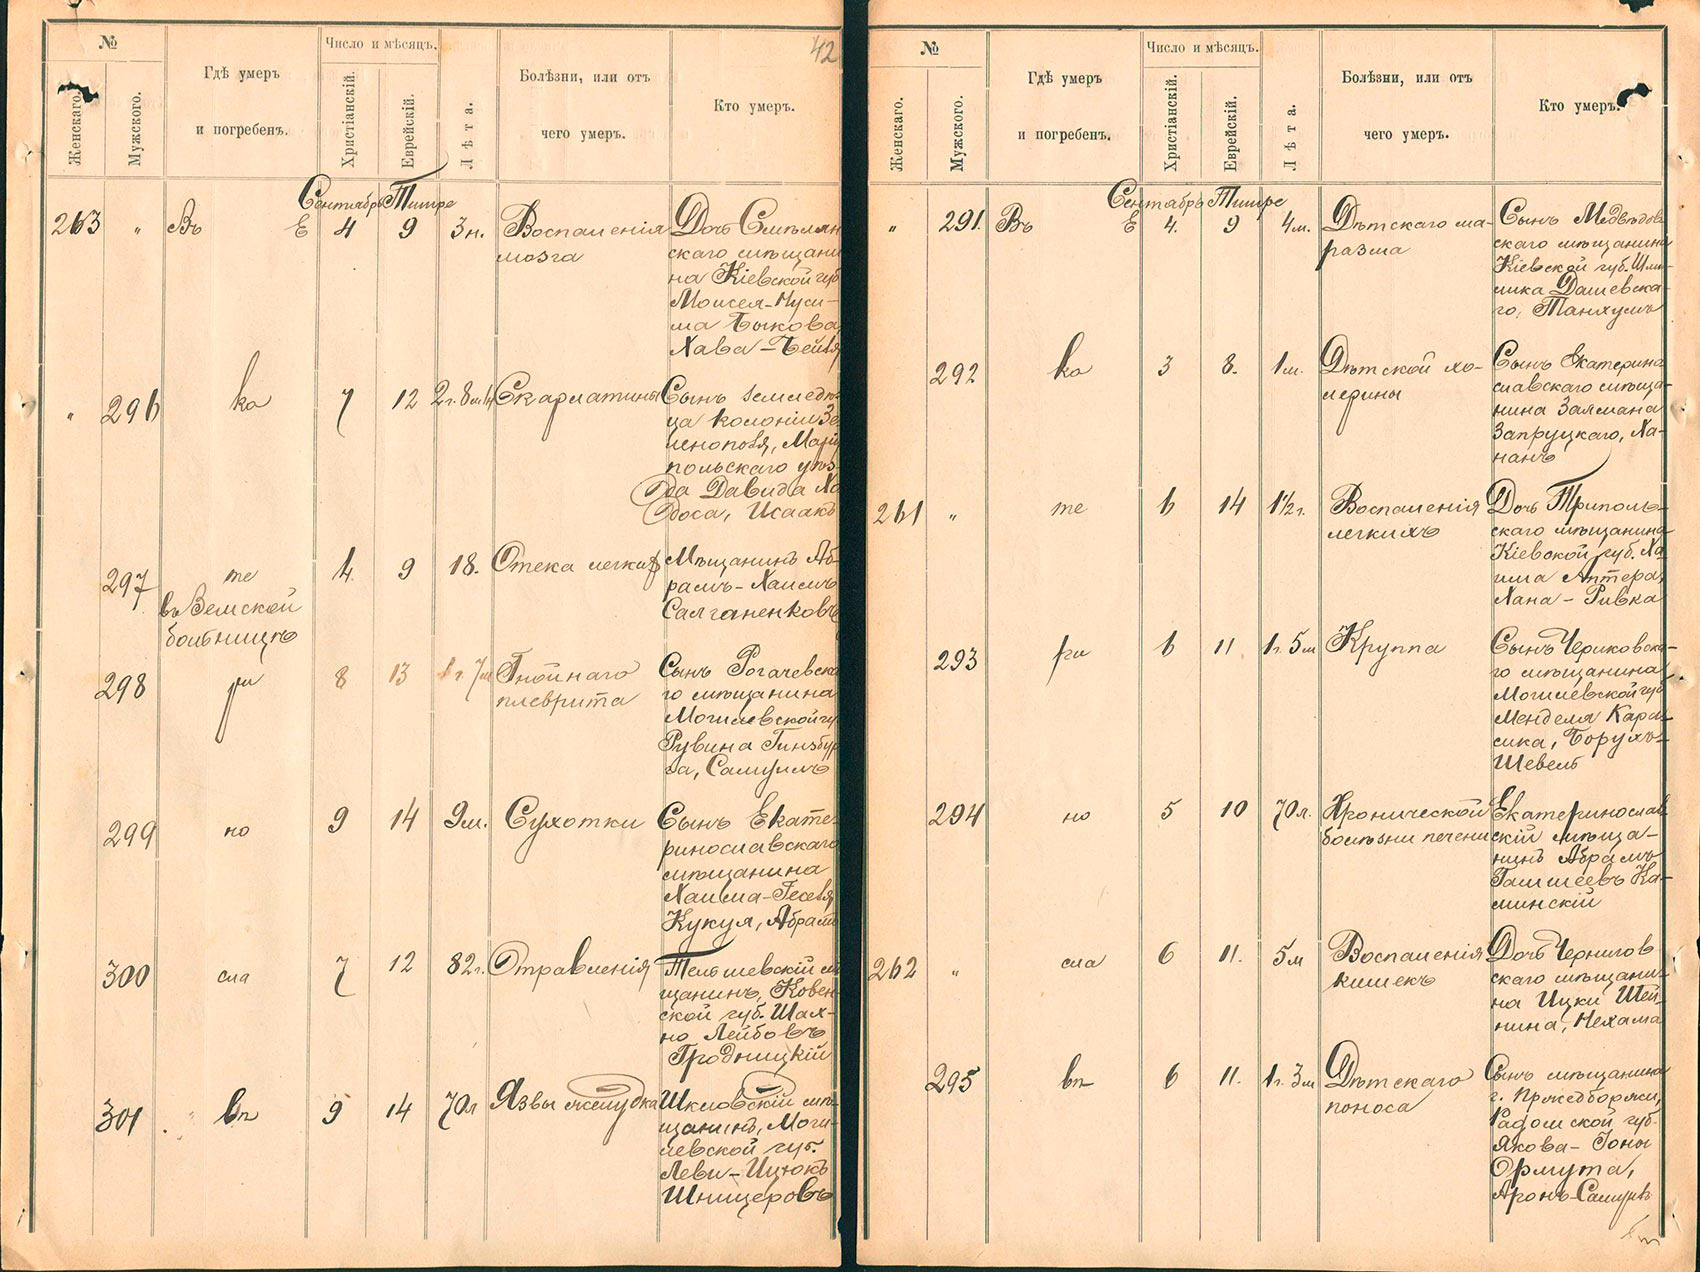 42
№
Женскаго.
Мужского.
Гдѣ умеръ
и погребенъ.
Число и мѣсяцъ.
Христіанскій.
Еврейскій.
Лѣта.
Болѣзни, или отъ
чего умеръ.
Кто умеръ.
Сентябрь Тишре
263 " Въ Е 4 9 3н. Воспаленія
мозга
Дочь Смѣлян
скаго мѣщани
на Кіевской губ
Моисея-Нуси-
ма Быкова
Хава-Бейля
" 296 ка 7 12 2г. 8м. Скарлатины
Сынъ земледѣ
ца колоніи Зе
ленополя, Марiу
польскаго уѣз
да Давида Хо
доса, Исаакъ
297 те 4. 9 18. Отека легкихъ
въ Земской
больницѣ
Мѣщанинъ Аб
рамъ-Хаимъ
Салганенковъ
298 ри 8 13 1г. 7м Гнойнаго
плеврита
Сынъ Рогачевска
го мѣщанина
Могилевской гу
Рувина Гинзбур
га, Самуилъ
299 но 9 14 9м. Сухотки
Сынъ Екате
ринославскаго
мѣщанина
Хаима-Геселя
Кукуя, Абрамъ
300 сла 7 12 82г. Отравленія
Тельшевскій мѣ
щанинъ, Ковен
ской губ. Шах-
но Лейбовъ
Гродницкій
301 вѣ 9 14 70л Язвы желудка
Шкловскій мѣ
щанинъ, Моги
левской губ.
Леви-Ицюкъ
Шницеровъ
№
Женскаго.
Мужского.
Гдѣ умеръ
и погребенъ.
Число и мѣсяцъ.
Христіанскій.
Еврейскій.
Лѣта.
Болѣзни, или отъ
чего умеръ.
Кто умеръ.
Сентябрь Тишре
" 291. Въ Е 4. 9 4м. Дѣтскаго ма-
разма
Сынъ Медвѣдов
скаго мѣщанина
Кіевской губ. Шли-
мика Дашевска-
го, Танхумъ
292 ка 3 8. 1м. Дѣтской хо-
лерины
Сынъ Екатерино
славскаго мѣща-
нина Залмана
Запруцкаго, Ха-
нанъ
261 " те 6 14 1½г. Воспаленія
легкихъ
Дочь Триполь-
скаго мѣщанина
Кіевской губ. Ха
има Аптера,
Хана-Ривка
293 ри 6 11. 1г. 5м Круппа
Сынъ Чериковска-
го мѣщанина
Могилевской губ
Менделя Кара
сика, Борухъ-
Шевель
294 но 5 10 70л. Хронической
болѣзни печени
Екатеринослав
скій мѣща-
нинъ Абрамъ
Ка-
минскій
262 " сла 6 11. 5м Воспаленія
кишекъ
Дочь Чернигов
скаго мѣщани-
на Ицки Шей-
нина, Нехама
295 вѣ 6 11. 1г. 3м Дѣтскаго
поноса
Сынъ мѣщанина
г. Пржедборжи,
Радомской губ.
Якова-Іоны
Ормута,
Аронъ-Самуилъ